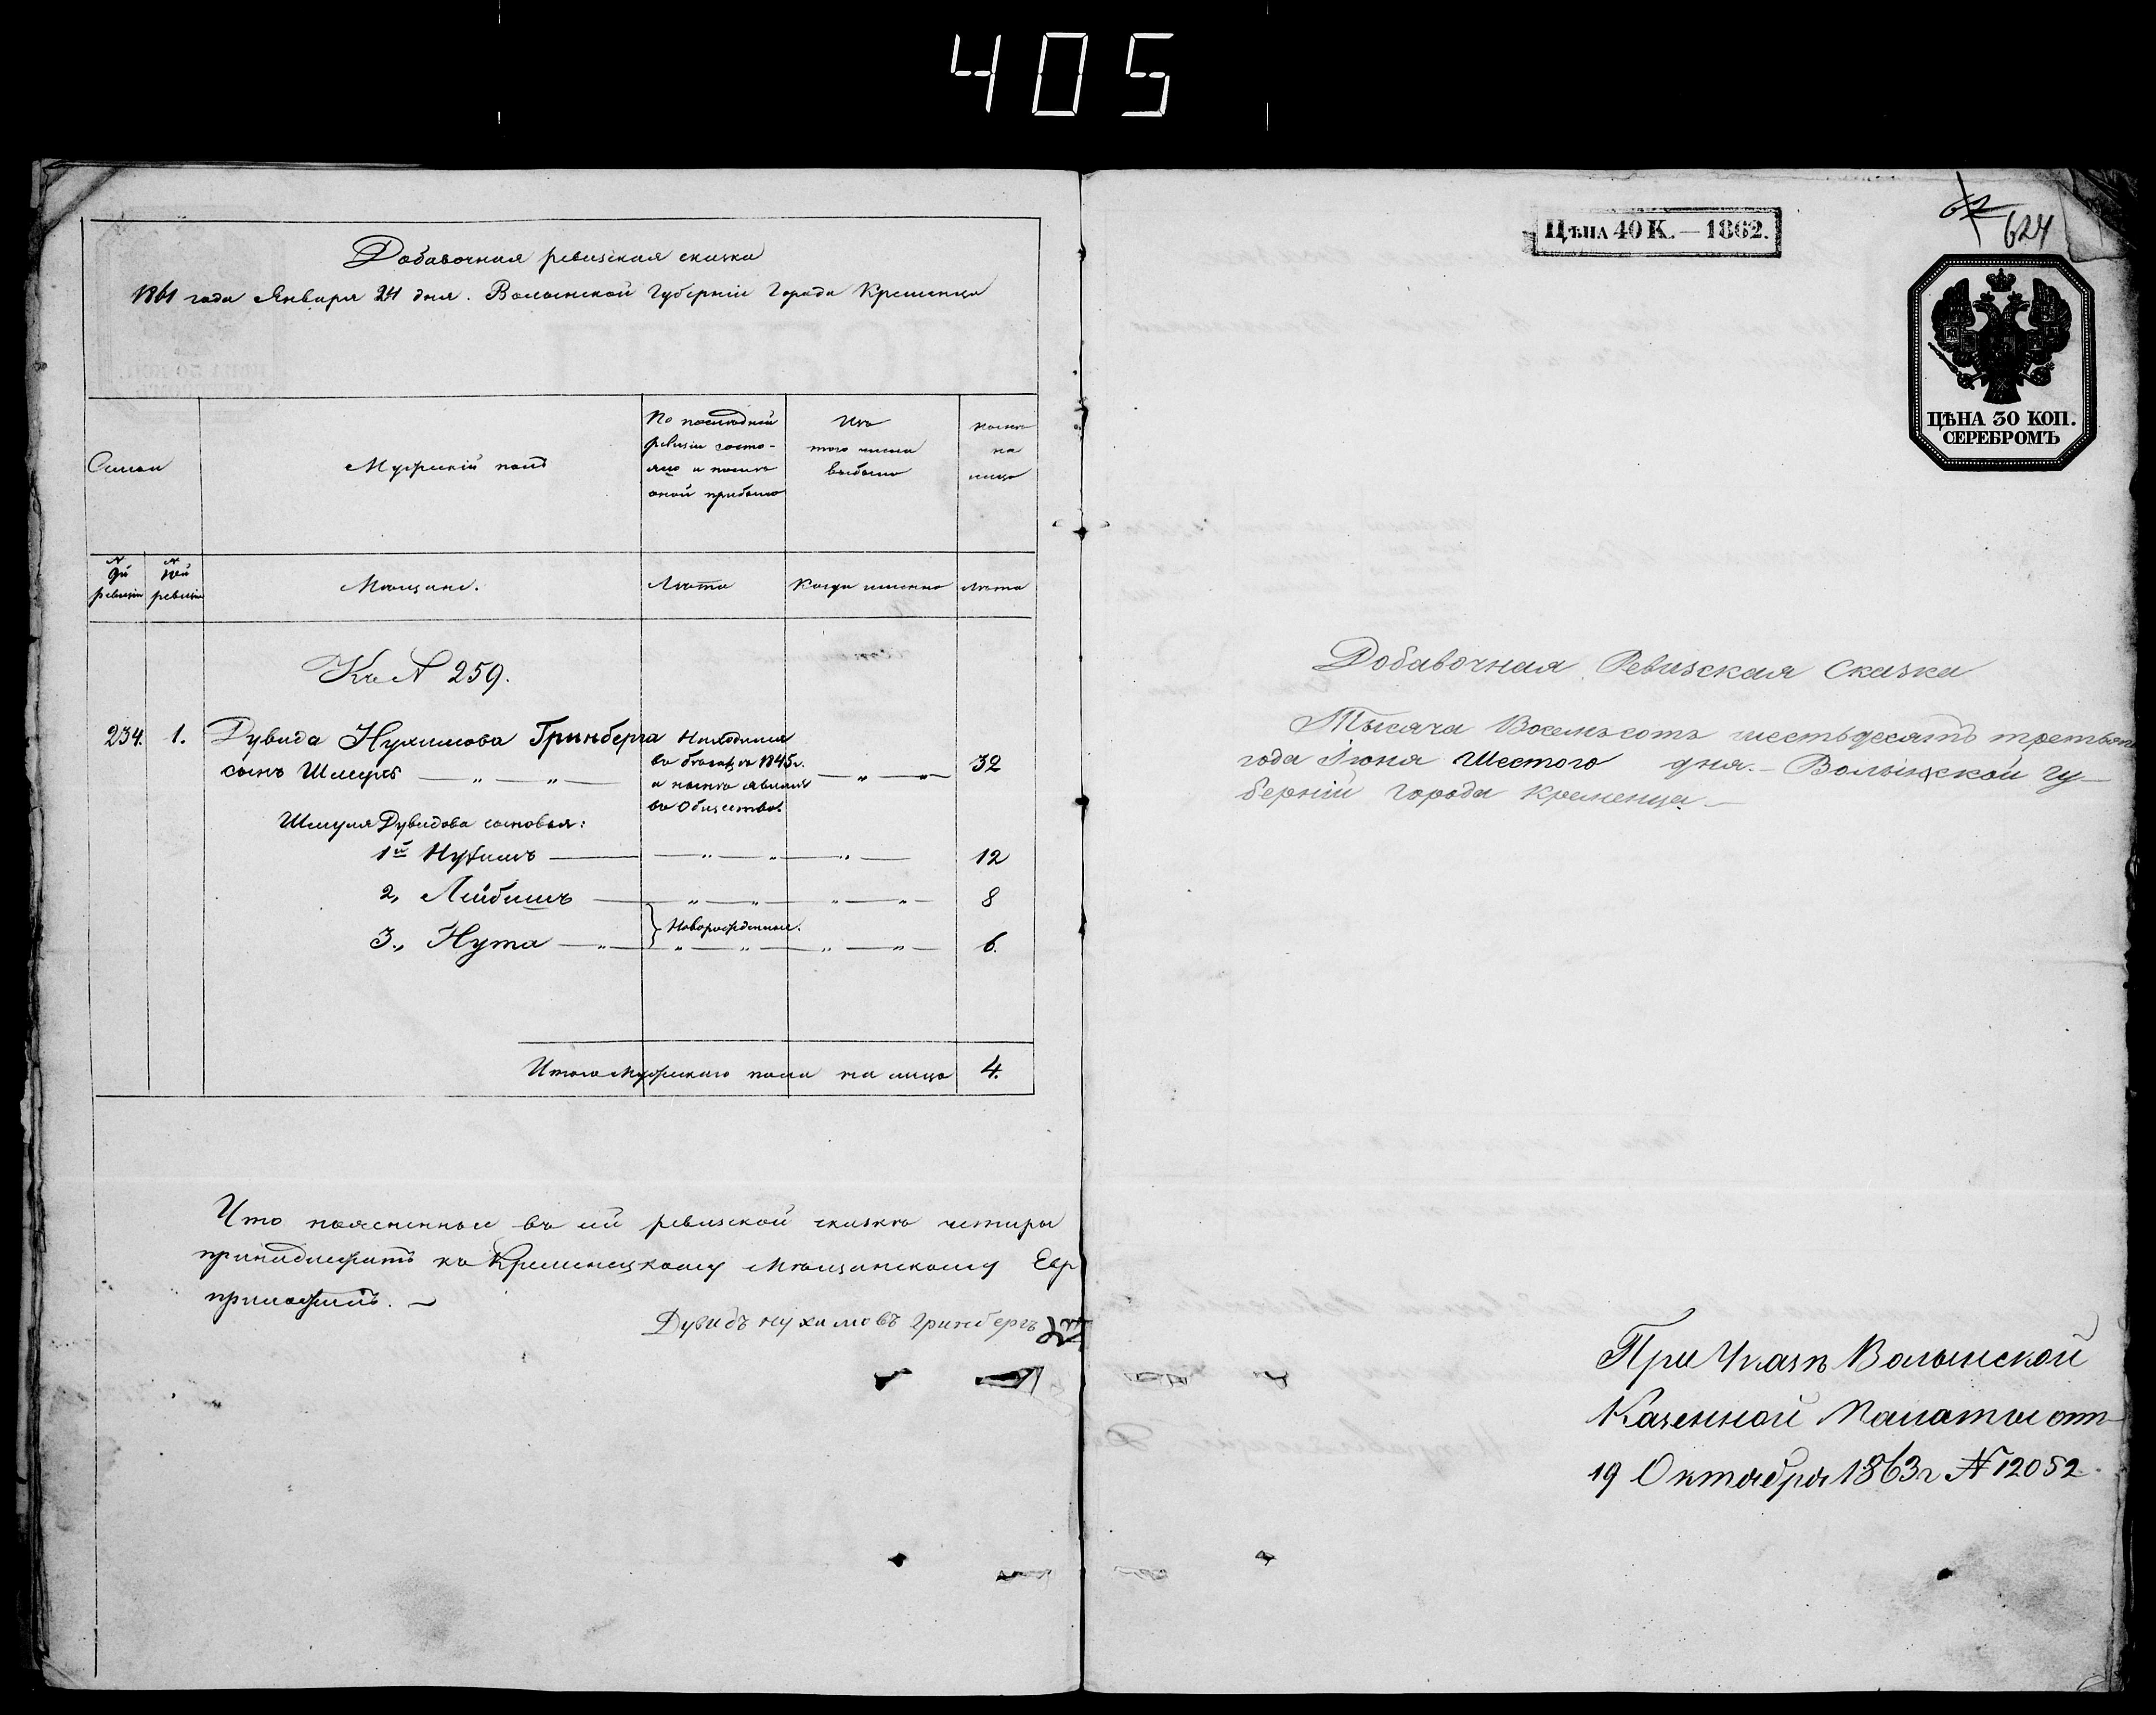 405
Добавочная ревизская сказка
1861 года Января 24 дня. Волынской Губерніи Города Кременца
Семьи
Мужескій полъ
По послѣдней
ревизіи состо-
яло и послѣ
оной прибыло
Изъ
того числа
выбыло
Нынѣ
на
лицо
№
9й
ревизіи
№
10й
ревизіи
Мѣщане.
Лѣта
Когда именно
Лѣта
Къ № 259.
234. 1. Дувида Нухимова Гринберга
сынъ Шмуль — „ — „ —
Находился
въ бѣгахъ съ 1845 г.
и нынѣ явился
въ Общество.
— „ — „ — 32
Шмуля Дувидова сыновья:
1й Нухимъ — „ — „ — „ — 12
2, Лейбишъ — „ — „ — „ — „ — 8
Новорожденные.
3., Нута — „ — „ — „ — „ — „ — 6.
Итого мужескаго пола на лицо 4.
Что поясненные въ сей ревизской сказкѣ четыре
принадлежатъ къ Кременецкому Мѣщанскому Евр
Дувидъ Нухимовъ Гринбергъ
ЦѢНА 40 К. — 1862.
624
ЦѢНА 30 КОП.
СЕРЕБРОМЪ
Добавочная Ревизская Сказка
Тысяча Восемьсотъ шестьдесятъ третьяго
года Іюня Шестого дня. — Волынской Гу-
берніи Города Кременца. —
При Указѣ Волынской
Казенной Палаты отъ
19 Октября 1863 г № 12052.